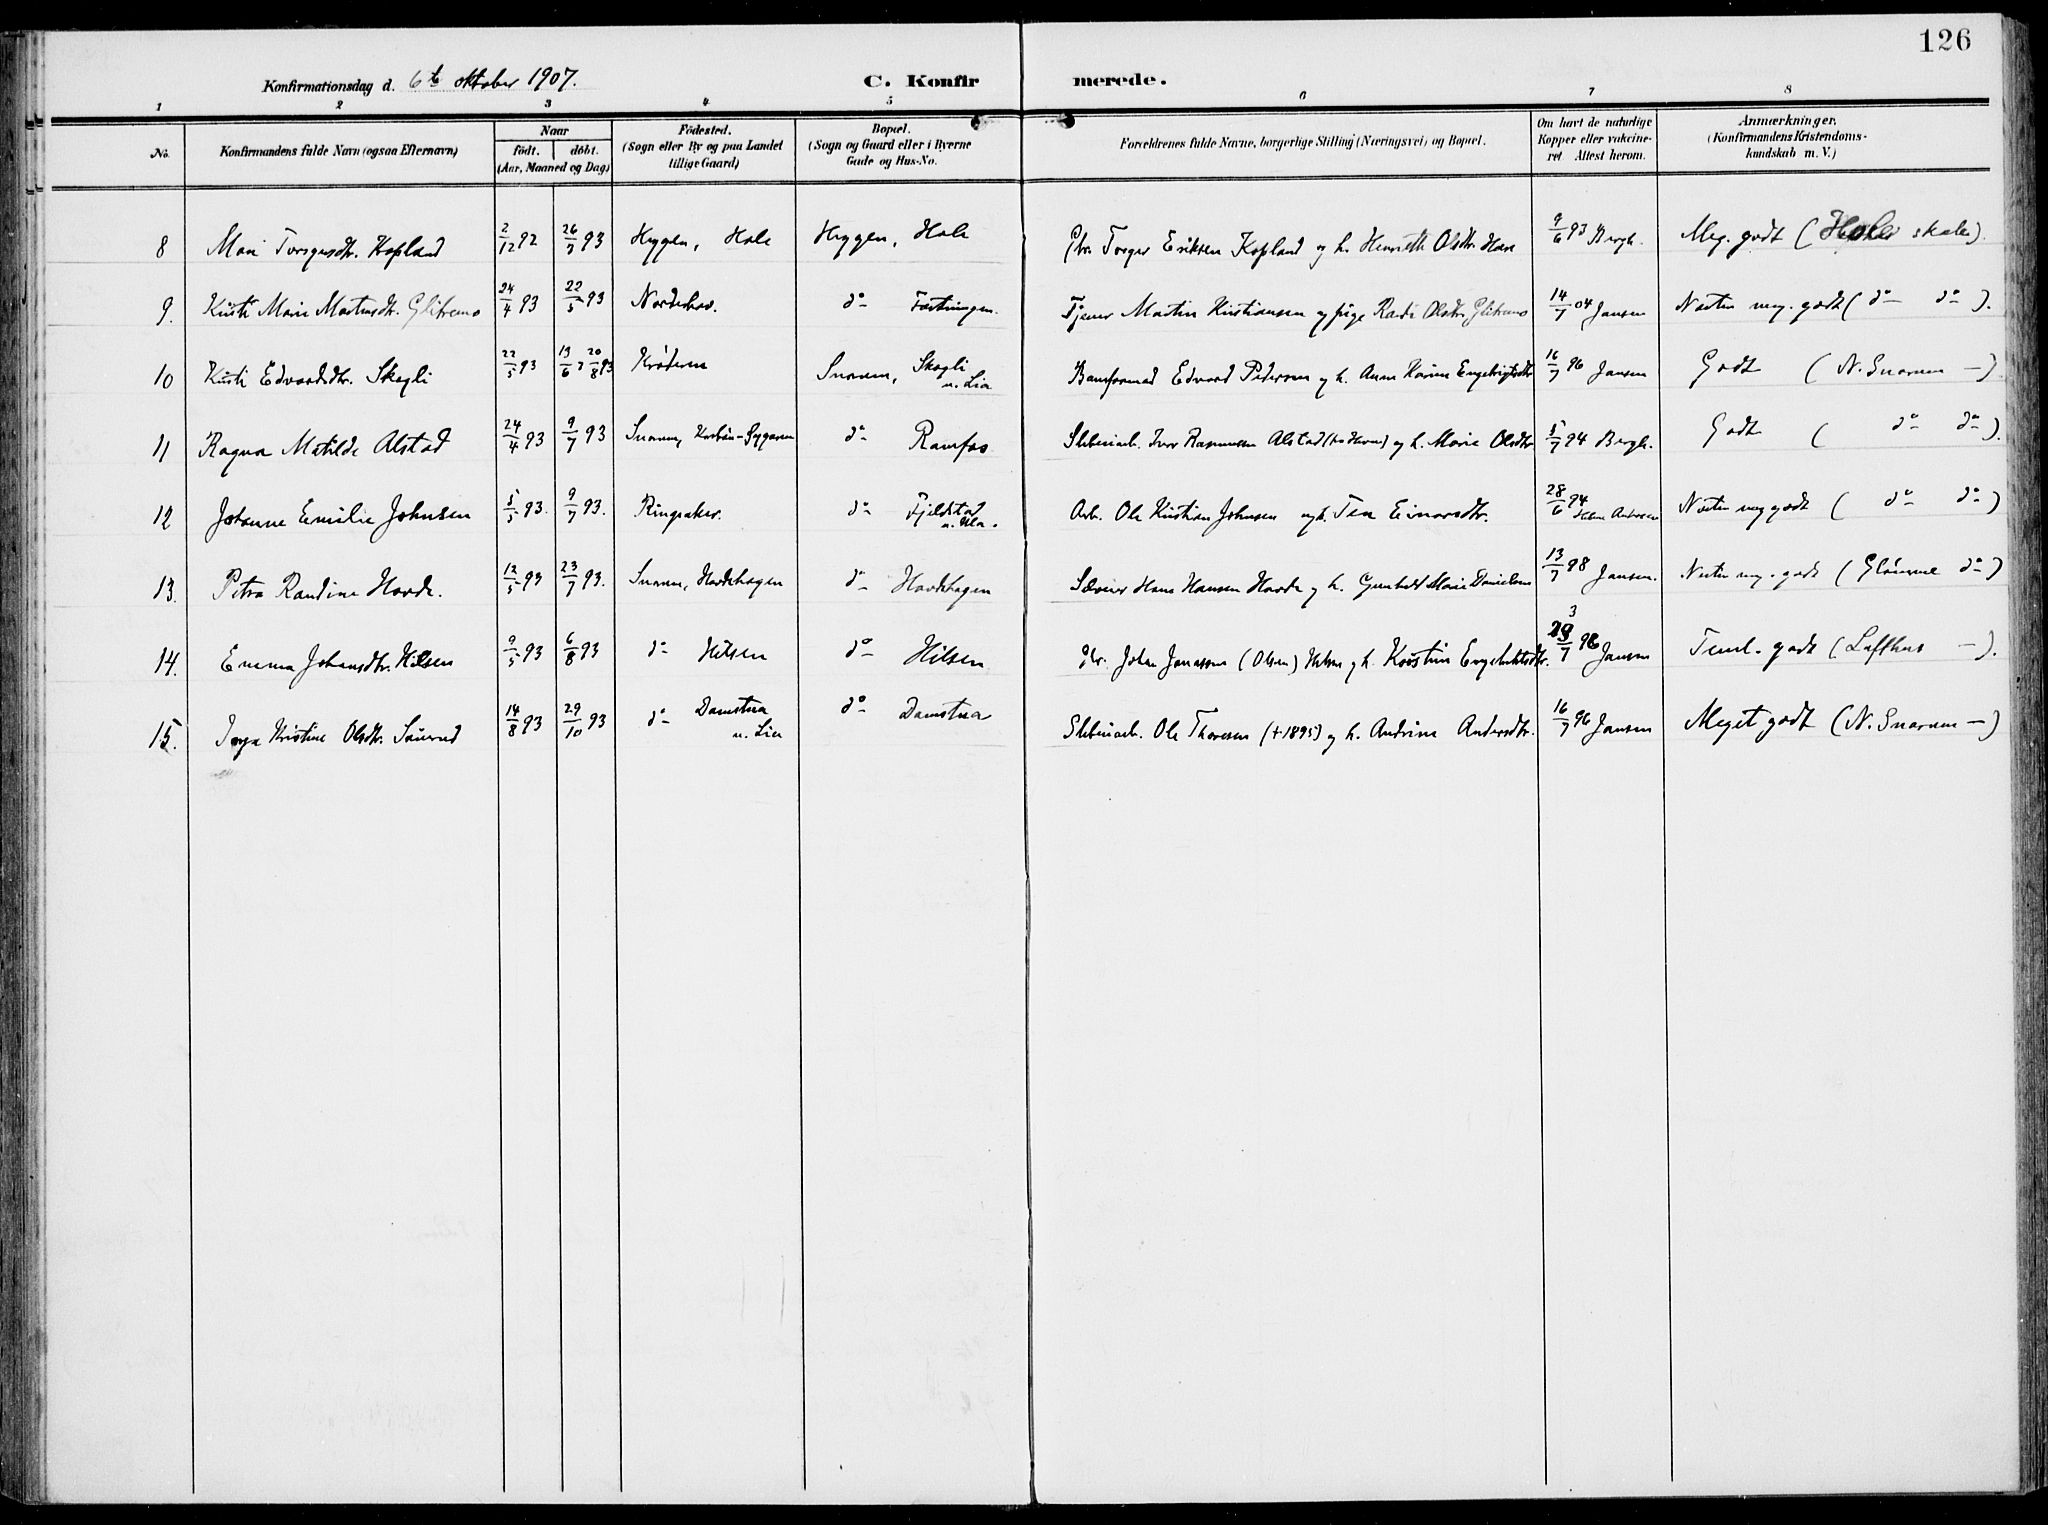 126
Konfirmationsdag d. 6te oktober 1907.
C. Konfirmerede.
1 2 3 4 5 6 7 8
No. Konfirmandens fulde Navn (ogsaa Efternavn) Naar födt. döbt. (Aar, Maaned og Dag) Födested. (Sogn eller By og paa Landet tillige Gaard) Bopæl. (Sogn og Gaard eller i Byerne Gade og Hus-No. Forældrenes fulde Navne, borgerlige Stilling (Næringsvei) og Bopæl. Om havt de naturlige Kopper eller vakcineret. Attest herom. Anmærkninger. (Konfirmandens Kristendomskundskab m. V.)
8 Mari Torgersdtr. Kopland 2/12 92 26/3 93 Heggen, Hole Heggen, Hole Torger Eriksen Kopland og h. Henriette Olsdtr. 9/6 93 Bergh. Meg. godt (Holes skole).
9. Kristi Marie Martinsdtr. Glitremo 24/4 93 22/5 93 Norderhov. do Martin Kristiansen og pige Randi Olsdtr. Glitremo 14/7 04 Jansen Næsten meg. godt (do do).
10 Kristi Edvardsdtr. Skogli 22/5 93 13/6 20/8 93 Krödern Snarum, Skogli u. Lia Edvard Pedersen og h. Anne Karine Engebrigtsdtr. 16/7 96 Jansen Godt (N. Snarum —)
11 Ragna Matilde Alstad 24/4 93 9/7 93 Snarum, do Ramfos Sliberiarb. Iver Rasmussen Alstad og h. Marie Olsdtr. 5/7 94 Bergh. Godt (do do).
12 Johanne Emilie Johnsen 5/5 93. 9/7 93. Ringsaker. do Fjeldstad Arb. Ole Kristian Johnsen og h. Tea Einarsdtr. 28/6 94 Andersen Næsten meg godt (do do)
13. Petra Randine Hovde. 12/5 93 23/7 93. Snarum, Hovdehagen do Hovdehagen Hans Hansen Hovde og h. Gunhild Marie Danielsen 13/7 98 Jansen. Næsten meg. godt (Glömme do)
14. Emma Johansdtr. Hilsen 9/5 93 6/8 93 do Hilsen do Hilsen Johan Jonassen (Olsen) Hilsen og h. Kristine Engebretsdtr. 3/7 96 Jansen Teml. godt (Lofthus —).
15. Inga Kristine Olsdtr. 14/8 93 29/10 93 do Damstua u. Lia do Damstua Sliberiarb. Ole Thoresen (+1895) og h. Andrine Andersdtr. 16/7 96 Jansen Meget godt (N. Snarum —)